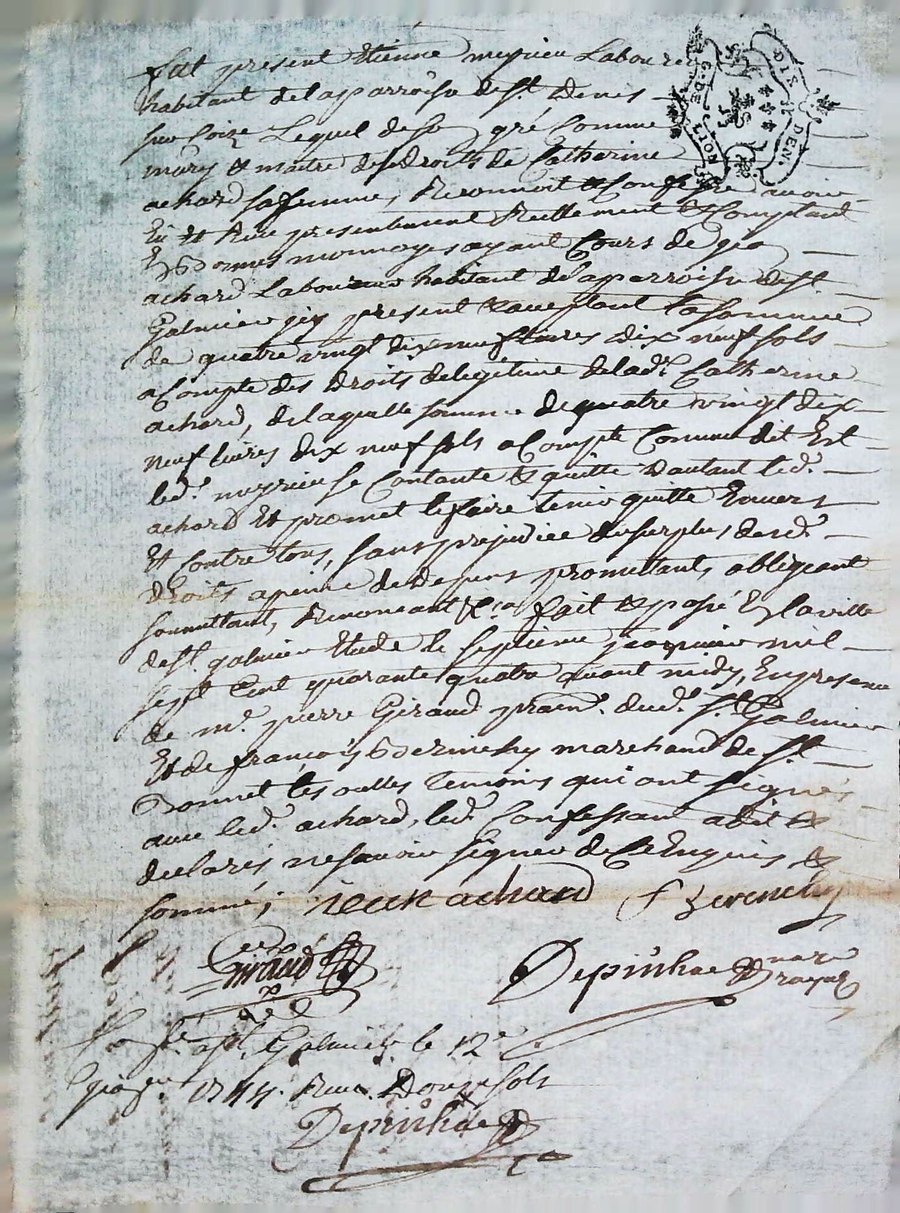 fut présent Etienne meyrieu Laboureur
habitant de la parroisse de St. Denis
sur Coize Lequel de son gré comme
mary et maitre des droits de Catherine
achard sa femme, Reconnoit et Confesse avoir
Eü et Receu presentement Reellement et Comptant
En Bonnes monnoyes ayant Cours de
achard Laboureur habitant de la parroisse de St.
Galmier icy present et acceptant la somme
de quatre vingt dix neuf livres dix neuf sols
a Compte des Droits de legitime de lad. Catherine
achard, de laquelle somme de quatre vingt dix
neuf livres dix neuf sols a Compte Comme dit Est
led. meyrieu se Contante et quitte D'autant led.
achard Et promet le faire tenir quitte Envers
Et Contre tous, sans prejudice du surplus desd.
Droits a peine de Depens promettants obligeant
soumettant, Renonceant &ca fait et passé En la ville
de St. galmier Etude le septieme janvier mil
sept Cent quarante quatre avant midy, En presence
de me. pierre Giraud dud. St. Galmier
Et de françois marchand de St.
Bonnet les oulles Temoins qui ont signés
avec led. achard, led. Confessant a dit et
declaré ne savoir signer de Ce Enquis et
sommé;
achard
Giraud
notre royal
a St. Galmier le 12e
1744. Receu Douze sols
G. DE LION
DIX DEN.